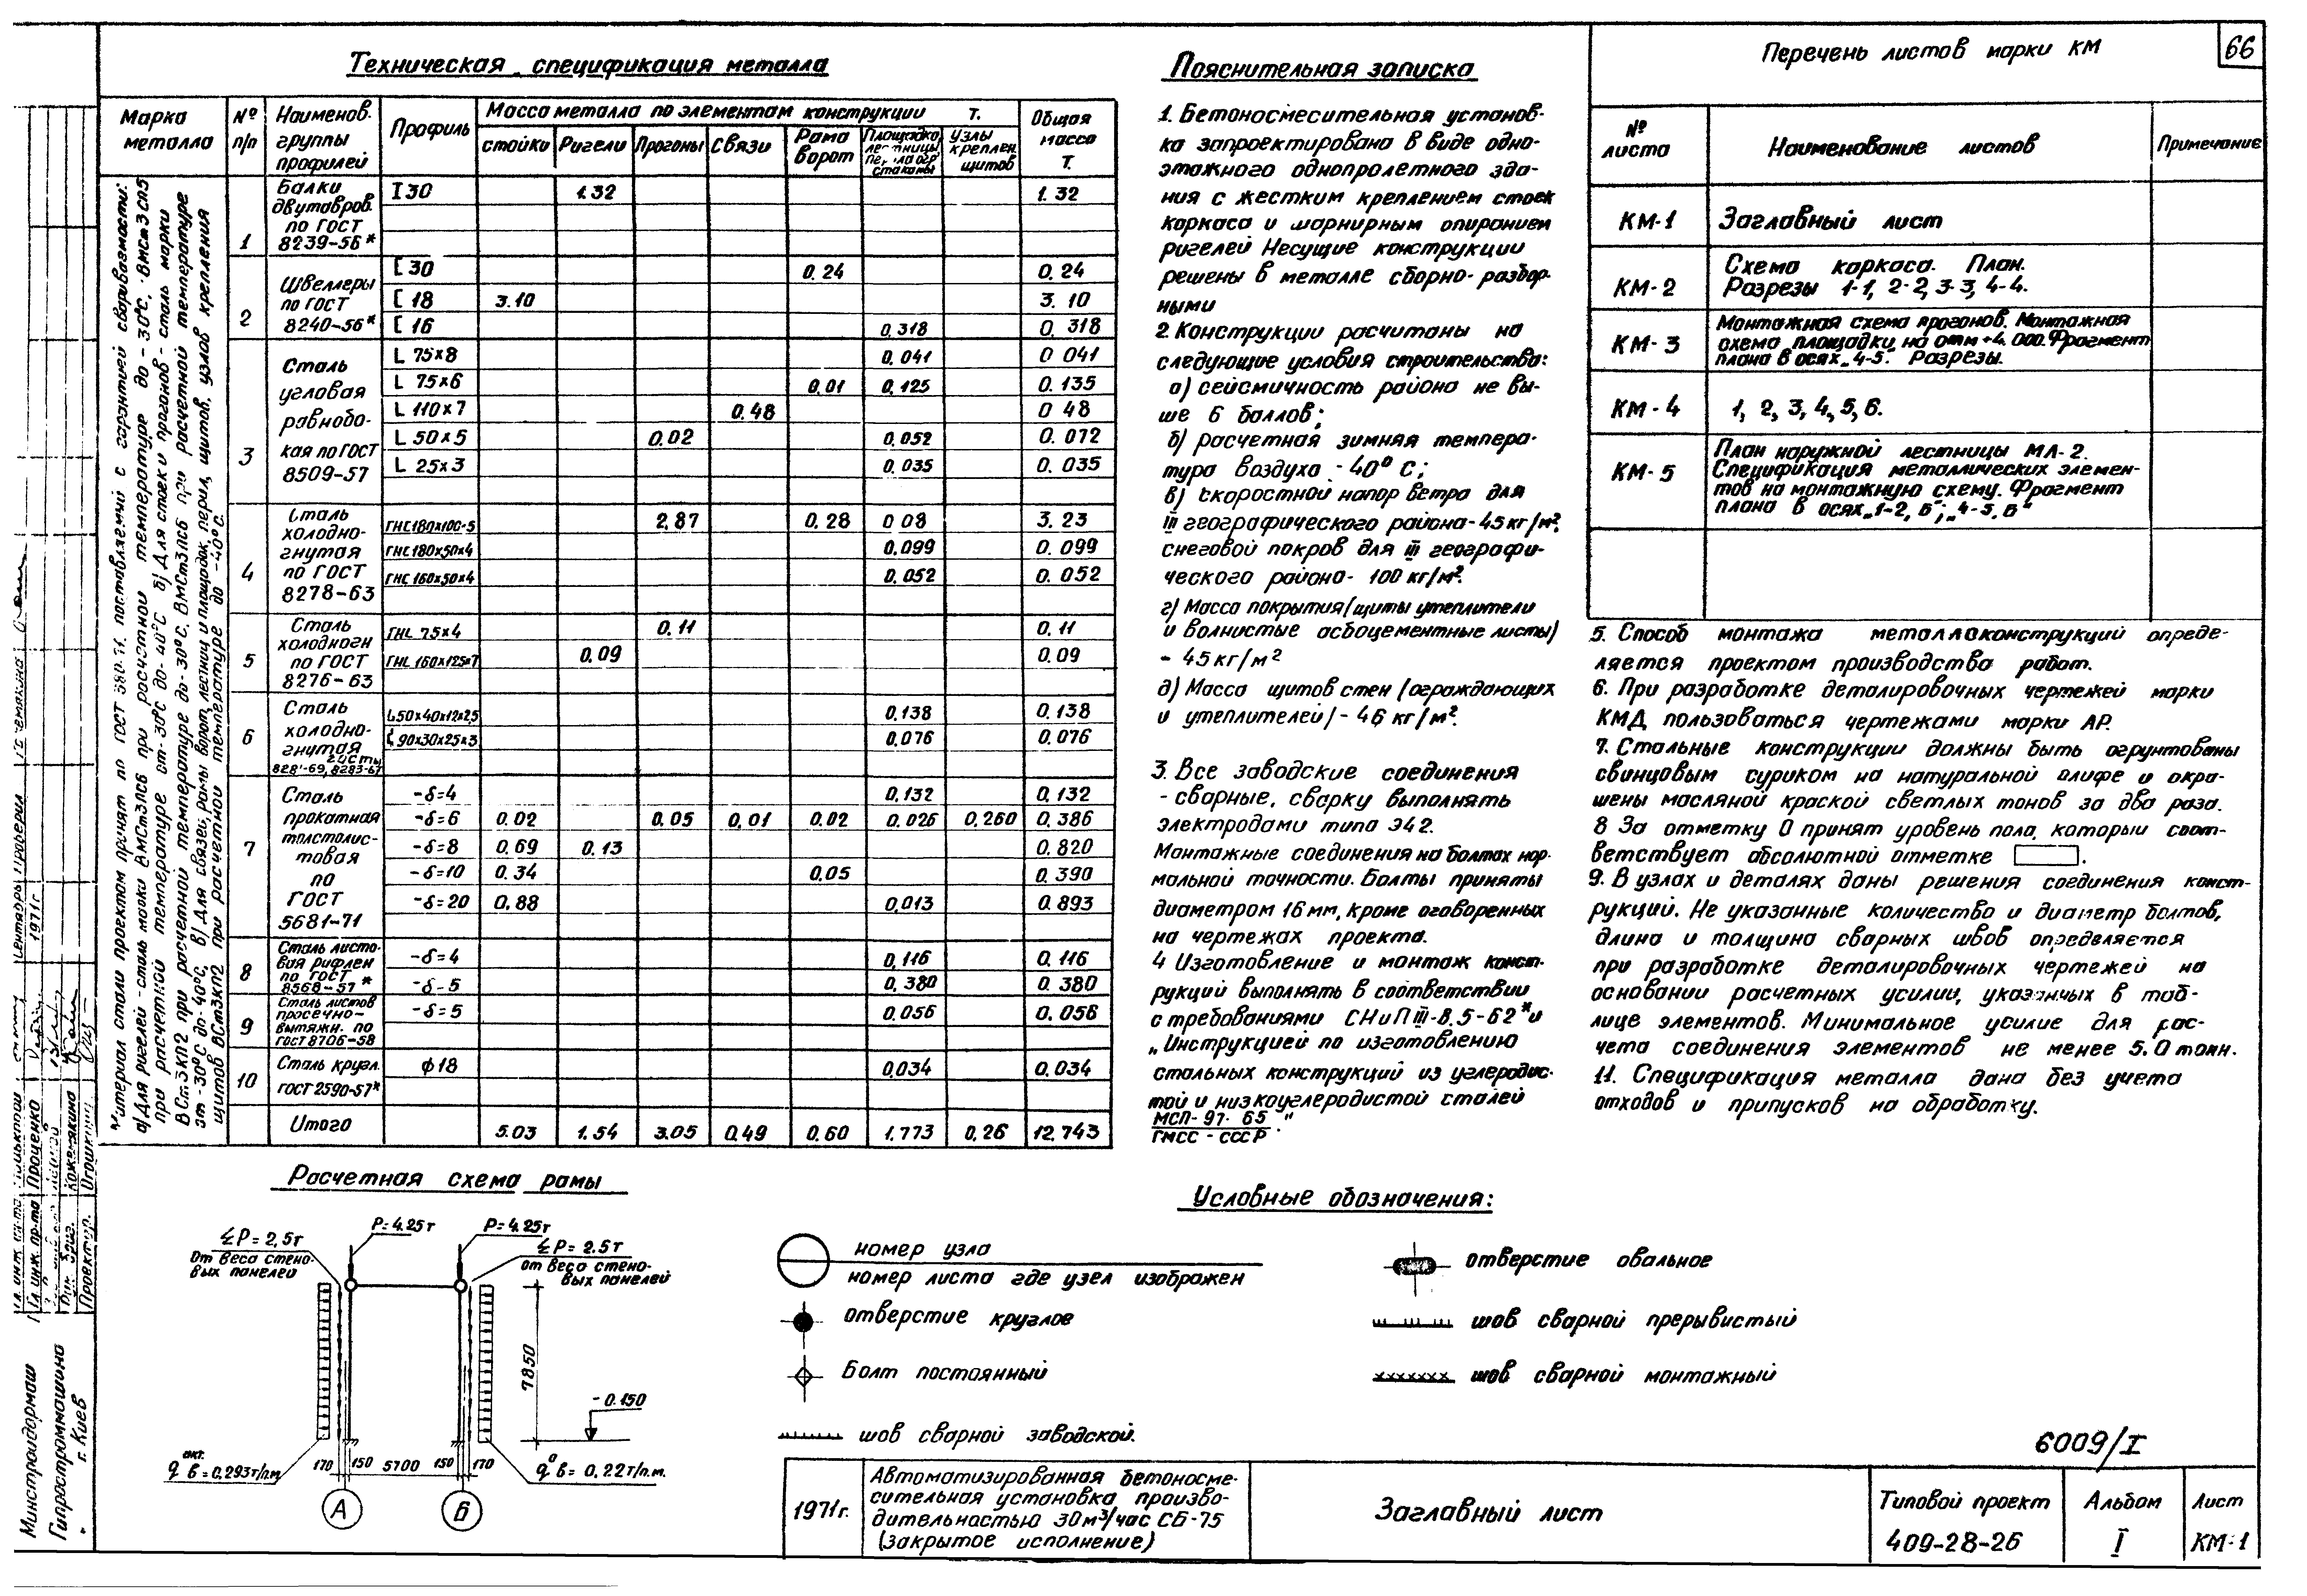 66
Техническая спецификация металла
Марка металла
№ п/п
Наименов. группы профилей
Профиль
Масса металла по элементам конструкции т.
Общая масса т.
стойки Ригели Прогоны Связи Рама ворот Узлы креплен. щитов
1 Балки двутавров. по ГОСТ 8239-56*
I 30 1.32 1.32
2 Швеллеры по ГОСТ 8240-56*
[ 30 0.24 0.24
[ 18 3.10 3.10
[ 16 0.318 0.318
3 Сталь угловая равнобокая по ГОСТ 8509-57
L 75x8 0.041 0 041
L 75x6 0.01 0.125 0.135
L 110x7 0.48 0 48
L 50x5 0.02 0.052 0.072
L 25x3 0.035 0.035
4 Сталь холодногнутая по ГОСТ 8278-63
ГНС180х100-5 2.87 0.28 0 08 3.23
ГНС180х50х4 0.099 0.099
ГНС 160х50х4 0.052 0.052
5 Сталь холодногн по ГОСТ 8276-63
ГНL 75х4 0.11 0.11
ГНL 160х125х7 0.09 0.09
6 Сталь холодногнутая
50х40х12х2,5 0.138 0.138
90х30х25х3 0.076 0.076
7 Сталь прокатная толстолистовая по ГОСТ 5681-71
-δ=4 0.132 0.132
-δ=6 0.02 0.05 0.01 0.02 0.026 0.260 0.386
-δ=8 0.69 0.13 0.820
-δ=10 0.34 0.05 0.390
-δ=20 0.88 0.013 0.893
8 Сталь листовая рифлен по ГОСТ 8568-57*
-δ=4 0.116 0.116
-δ-5 0.380 0.380
9 Сталь листов просечно-вытяжн. по ГОСТ 8706-58
-δ=5 0.056 0.056
10 Сталь кругл. ГОСТ 2590-57*
ф18 0.034 0.034
Итого 5.03 1.54 3.05 0.49 0.60 1.773 0.26 12.743
Пояснительная записка
1. Бетоносмесительная установ-
ка запроектирована в виде одно-
этажного однопролетного зда-
ния с жестким креплением стоек
каркаса и шарнирным опиранием
ригелей Несущие конструкции
решены в металле сборно-разбор-
ными
2. Конструкции расчитаны на
следующие условия строительства:
а) сейсмичность района не вы-
ше 6 баллов;
б) расчетная зимняя темпера-
тура воздуха -40° С;
в) скоростной напор ветра для
III географического района-45 кг/м²,
снеговой покров для III географи-
ческого района- 100 кг/м².
г) Масса покрытия (щиты утеплители
и волнистые асбоцементные листы)
- 45 кг/м²
д) Масса щитов стен (ограждающих
и утеплителей)- 46 кг/м².
3. Все заводские соединения
- сварные, сварку выполнять
электродами типа Э42.
Монтажные соединения на болтах нор-
мальной точности. Болты приняты
диаметром 16 мм, кроме оговоренных
на чертежах проекта.
4 Изготовление и монтаж конст-
рукций выполнять в соответствии
с требованиями СНиП III-В.5-62* и
„Инструкцией по изготовлению
стальных конструкций из углеродис-
той и низкоуглеродистой сталей
МСП-97-65"
ГМСС-СССР.
Перечень листов марки КМ
№ листа Наименование листов Примечание
КМ-1 Заглавный лист
КМ-2 Схема каркаса. План.
Разрезы 1-1, 2-2, 3-3, 4-4.
КМ-3 Монтажная схема прогонов. Монтажная
схема площадки на отм +4.000. Фрагмент
плана в осях „4-5". Разрезы.
КМ-4 1, 2, 3, 4, 5, 6.
КМ-5 План наружной лестницы МЛ-2.
Спецификация металлических элемен-
тов на монтажную схему. Фрагмент
плана в осях „1-2, Б"; „4-5, Б"
5. Способ монтажа металлоконструкций опреде-
ляется проектом производства работ.
6. При разработке деталировочных чертежей марки
КМД пользоваться чертежами марки АР.
7. Стальные конструкции должны быть огрунтованы
свинцовым суриком на натуральной олифе и окра-
шены масляной краской светлых тонов за два раза.
8 За отметку 0 принят уровень пола, который соот-
ветствует абсолютной отметке .
9. В узлах и деталях даны решения соединения конст-
рукций. Не указанные количество и диаметр болтов,
длина и толщина сварных швов определяется
при разработке деталировочных чертежей на
основании расчетных усилий, указанных в таб-
лице элементов. Минимальное усилие для рас-
чета соединения элементов не менее 5.0 тонн.
11. Спецификация металла дана без учета
отходов и припусков на обработку.
Расчетная схема рамы
Σ P = 2,5т
От веса стено-
вых панелей
P=4.25т
P=4.25т
Σ P = 2.5т
от веса стено-
вых панелей
7850
-0.150
q акт. в = 0,293т/п.м.
170 150 5700 150 170
q о в = 0,22т/п.м.
А
Б
Условные обозначения:
номер узла
номер листа где узел изображен
отверстие круглое
Болт постоянный
шов сварной заводской.
отверстие овальное
шов сварной прерывистый
шов сварной монтажный
6009/I
1971г.
Автоматизированная бетоносме-
сительная установка произво-
дительностью 30м³/час СБ-75
(закрытое исполнение)
Заглавный лист
Типовой проект
409-28-26
Альбом
I
Лист
КМ-1
Минстройдормаш
Гипростроммашина
г. Киев
Гл. инж. пр-та Проценко
Кожемякина
Проектир.
1971г.